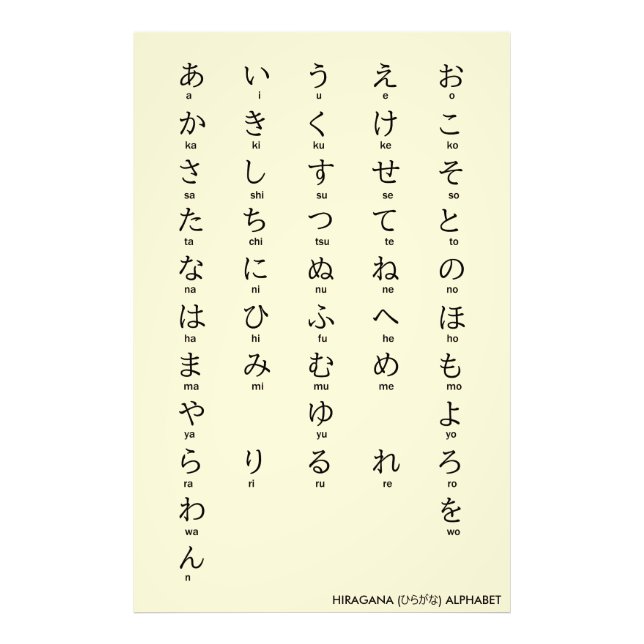 あ い う え お
a i u e o
か き く け こ
ka ki ku ke ko
さ し す せ そ
sa shi su se so
た ち つ て と
ta chi tsu te to
な に ぬ ね の
na ni nu ne no
は ひ ふ へ ほ
ha hi fu he ho
ま み む め も
ma mi mu me mo
や ゆ よ
ya yu yo
ら り る れ ろ
ra ri ru re ro
わ を
wa wo
ん
n
HIRAGANA (ひらがな) ALPHABET